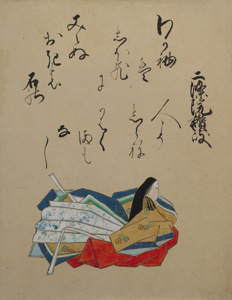 二條院讃岐
わか袖
は
しほひ
に
みえぬ
おきの
石の
人こそ
しらね
かわく
まも
なし